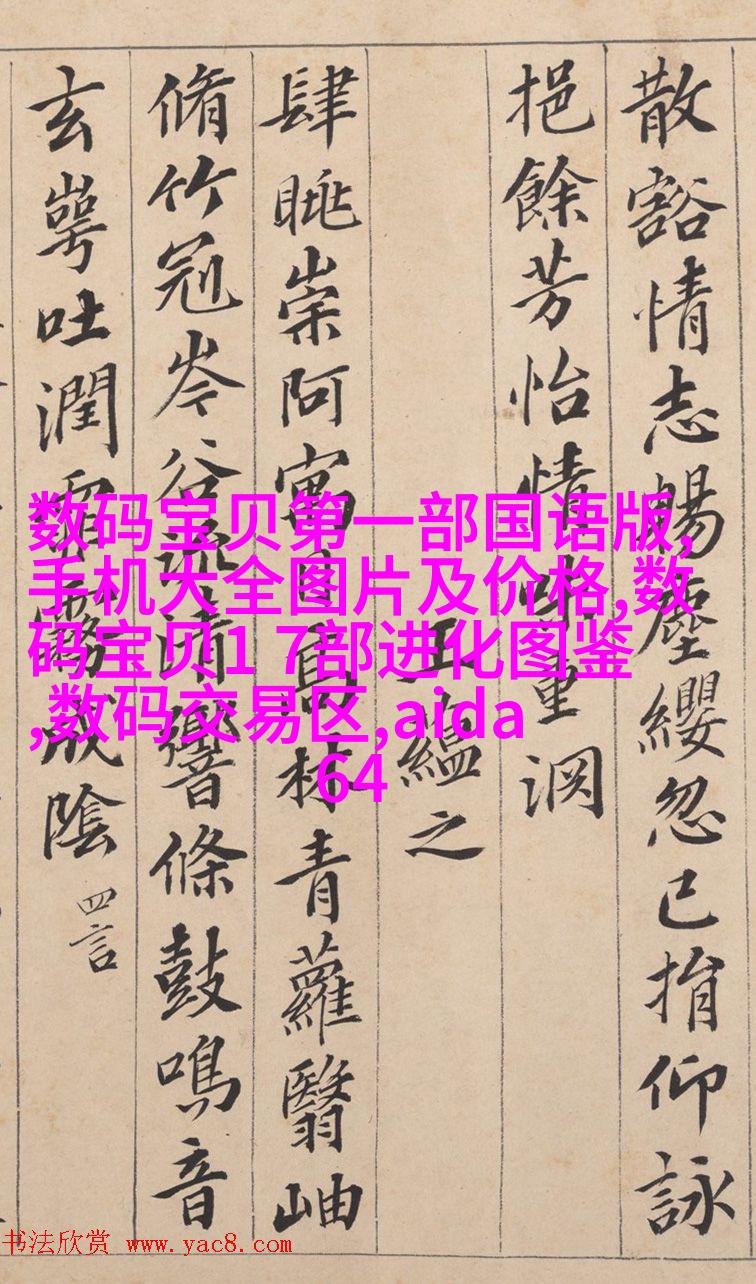 散豁情志暢塵纓忽已捐仰詠
挹餘芳怡情味重淵
王蘊之
肆眺崇阿寓目高林青蘿翳岫
脩竹冠岑谷流清響條鼓鳴音
玄崿吐潤霏霧成陰 四言
数码宝贝第一部国语版,
手机大全图片及价格,数
码宝贝1 7部进化图鉴
,数码交易区,aida
64
书法欣赏 www.yac8.com